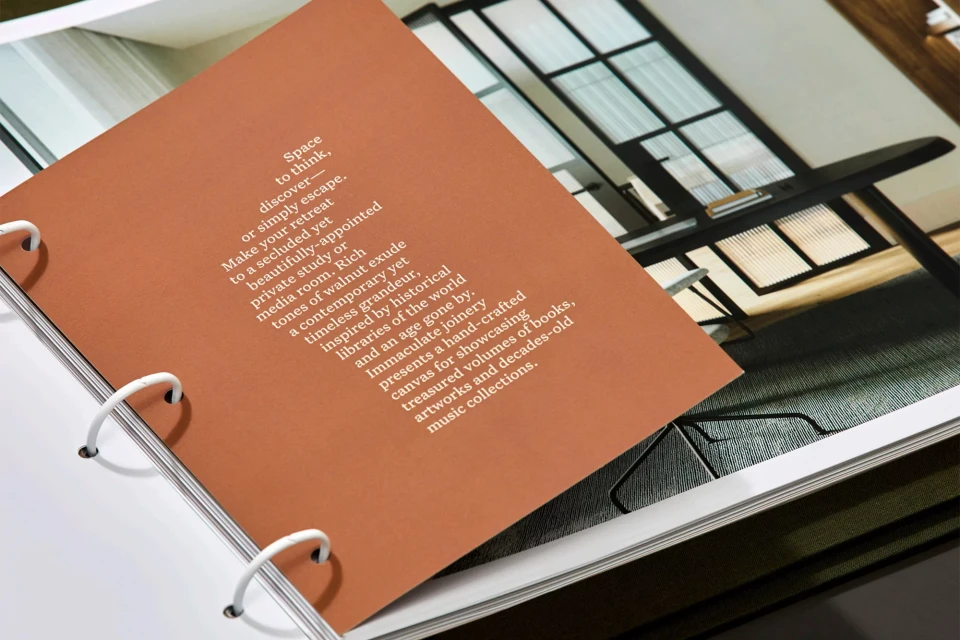 Space
to think,
discover—
or simply escape.
Make your retreat
to a secluded yet
beautifully-appointed
private study or
media room. Rich
tones of walnut exude
a contemporary yet
timeless grandeur,
inspired by historical
libraries of the world
and an age gone by.
Immaculate joinery
presents a hand-crafted
canvas for showcasing
treasured volumes of books,
artworks and decades-old
music collections.